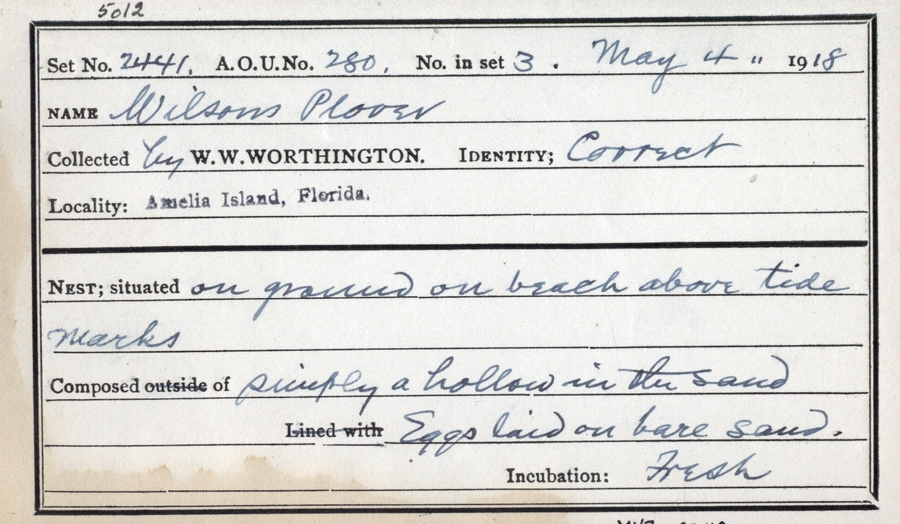 5012
Set No. 2441. A.O.U.No. 280. No. in set 3. May 4 " 1918
NAME Wilsons Plover
Collected by W.W.WORTHINGTON. IDENTITY; Correct
Locality: Amelia Island, Florida.
NEST; situated on ground on beach above tide
marks
Composed outside of simply a hollow in the sand
Lined with Eggs laid on bare sand.
Incubation: Fresh